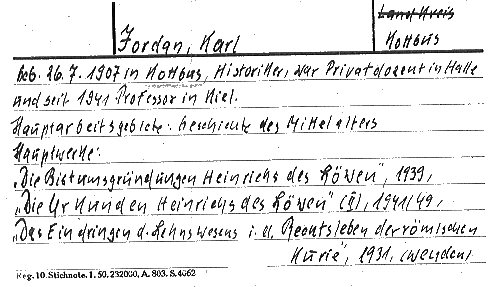 Jordan, Karl
Land Kreis
Kottbus
geb. 26.7.1907 in Kottbus, Historiker, war Privatdozent in Halle
und seit 1941 Professor in Kiel.
Hauptarbeitsgebiete: Geschichte des Mittelalters
Hauptwerke:
„Die Bistumsgründungen Heinrichs des Löwen", 1939,
„Die Urkunden Heinrichs des Löwen" (II), 1941/49,
„Das Eindringen d. Lehnswesens i. d. Rechtsleben der römischen
Kurie", 1931, (wenden)
Reg. 10. Stichnote. 1. 50. 232000, A. 803. S. 4662